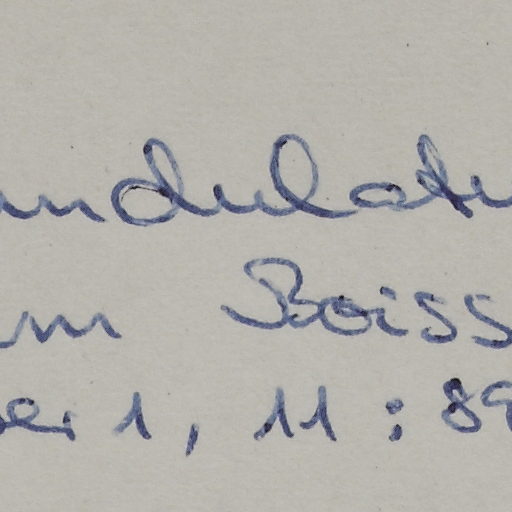 undulatu
m Boiss
ser 1, 11 : 89